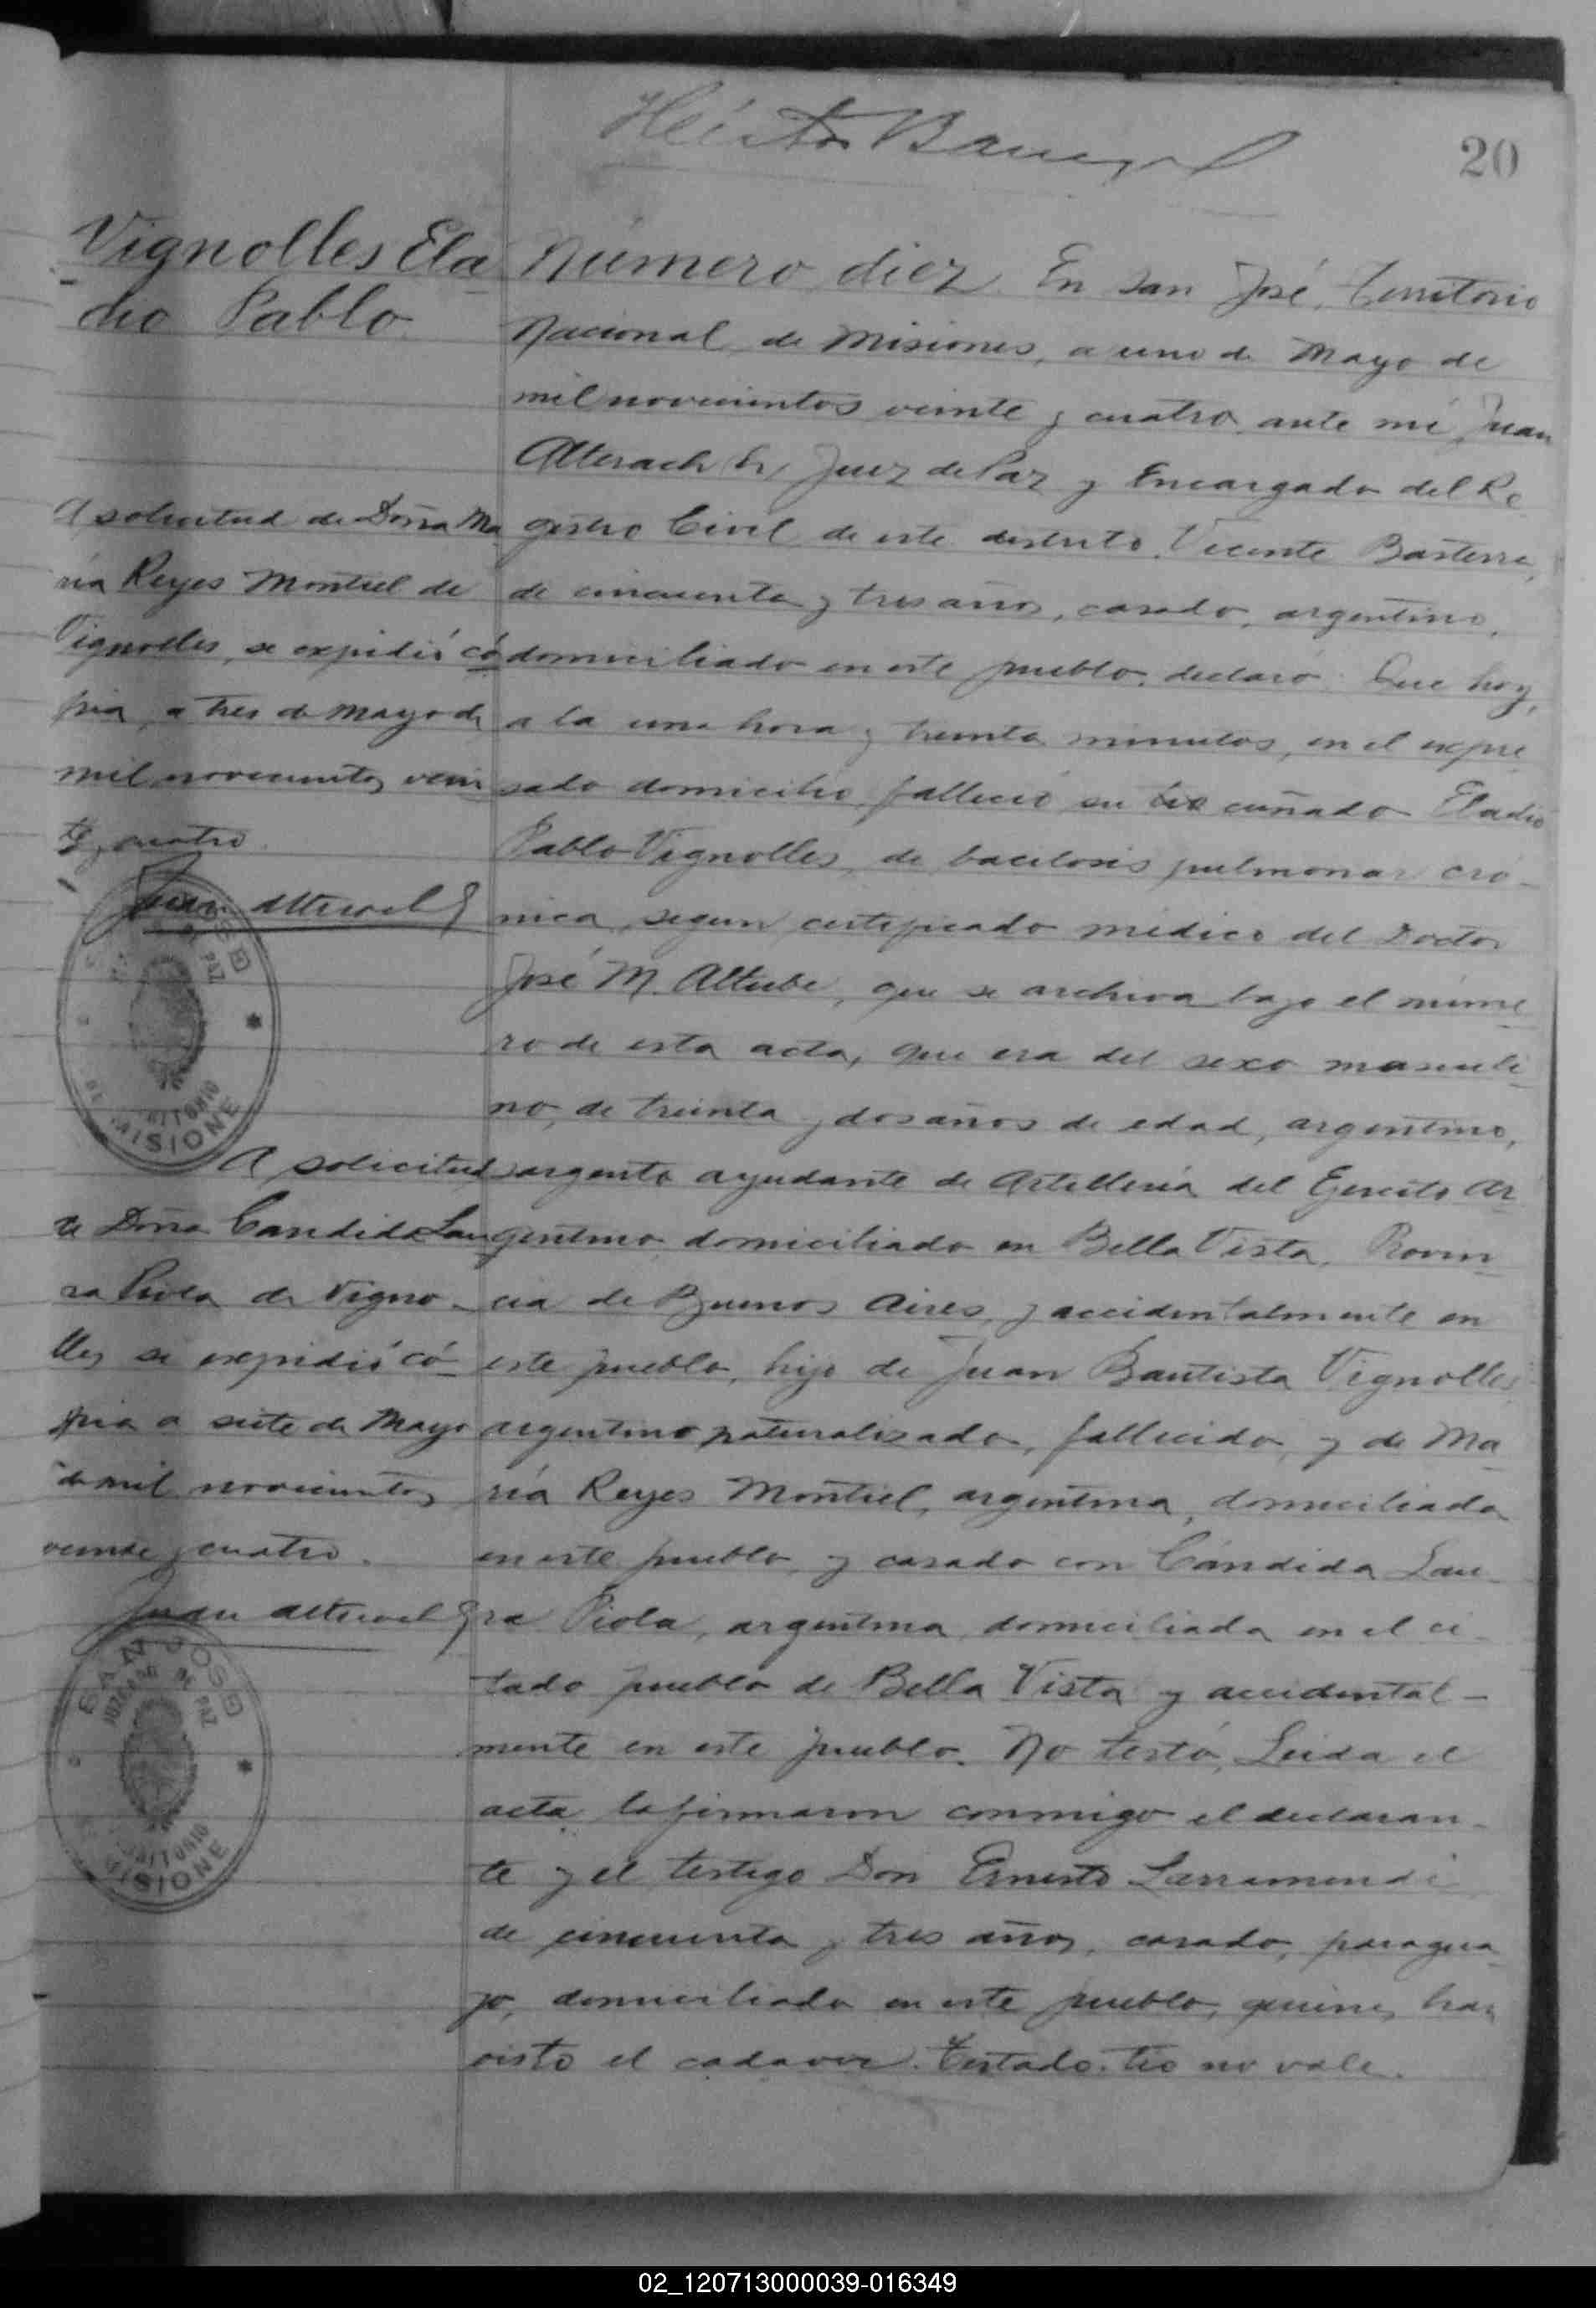 Héctor
20
Vignolles Ela
dio Pablo.
Número diez. En San José, Territorio
Nacional de Misiones, a uno de Mayo de
mil novecientos veinte y cuatro, ante mi Juan
Alterach h, Juez de Paz y Encargado del Re
gistro Civil de este distrito, Vicente Basterra,
de cincuenta y tres años, casado, argentino,
domiciliado en este pueblo, declaró: Que hoy,
a la una hora y treinta minutos, en el expre
sado domicilio falleció su tio cuñado Eladio
Pablo Vignolles, de bacilosis pulmonar cró-
nica, segun certificado médico del Doctor
José M. Altube, que se archiva bajo el núme
ro de esta acta, que era del sexo masculi
no, de treinta y dos años de edad, argentino,
sargento ayudante de Artillería del Ejercito Ar
gentino domiciliado en Bella Vista, Provin
cia de Buenos Aires, y accidentalmente en
este pueblo, hijo de Juan Bautista Vignolles
argentino naturalizado, fallecido, y de Ma
ría Reyes Montiel, argentina, domiciliada
en este pueblo, y casado con Cándida Lau-
ra Piola, argentina, domiciliada en el ci-
tado pueblo de Bella Vista y accidental-
mente en este pueblo. No testó, Leida el
acta, la firmaron conmigo el declaran-
te y el testigo Don Ernesto Larramendi
de cincuenta y tres años, casado, paragua
yo, domiciliado en este pueblo, quienes han
visto el cadaver. Testado: tio no vale.
A solicitud de Doña Ma
ría Reyes Montiel de
Vignolles, se expidió có
pia, a tres de Mayo de
mil novecientos vein
te y cuatro.
Juan Alterach
A solicitud
de Doña Candida Lau
ra Piola de Vigno-
lles se expidió có-
pia a siete de Mayo
de mil novecientos
veinte y cuatro.
Juan Alterach
SAN JOSE
JUZGADO DE PAZ
TERRITORIO
MISIONE
02_120713000039-016349